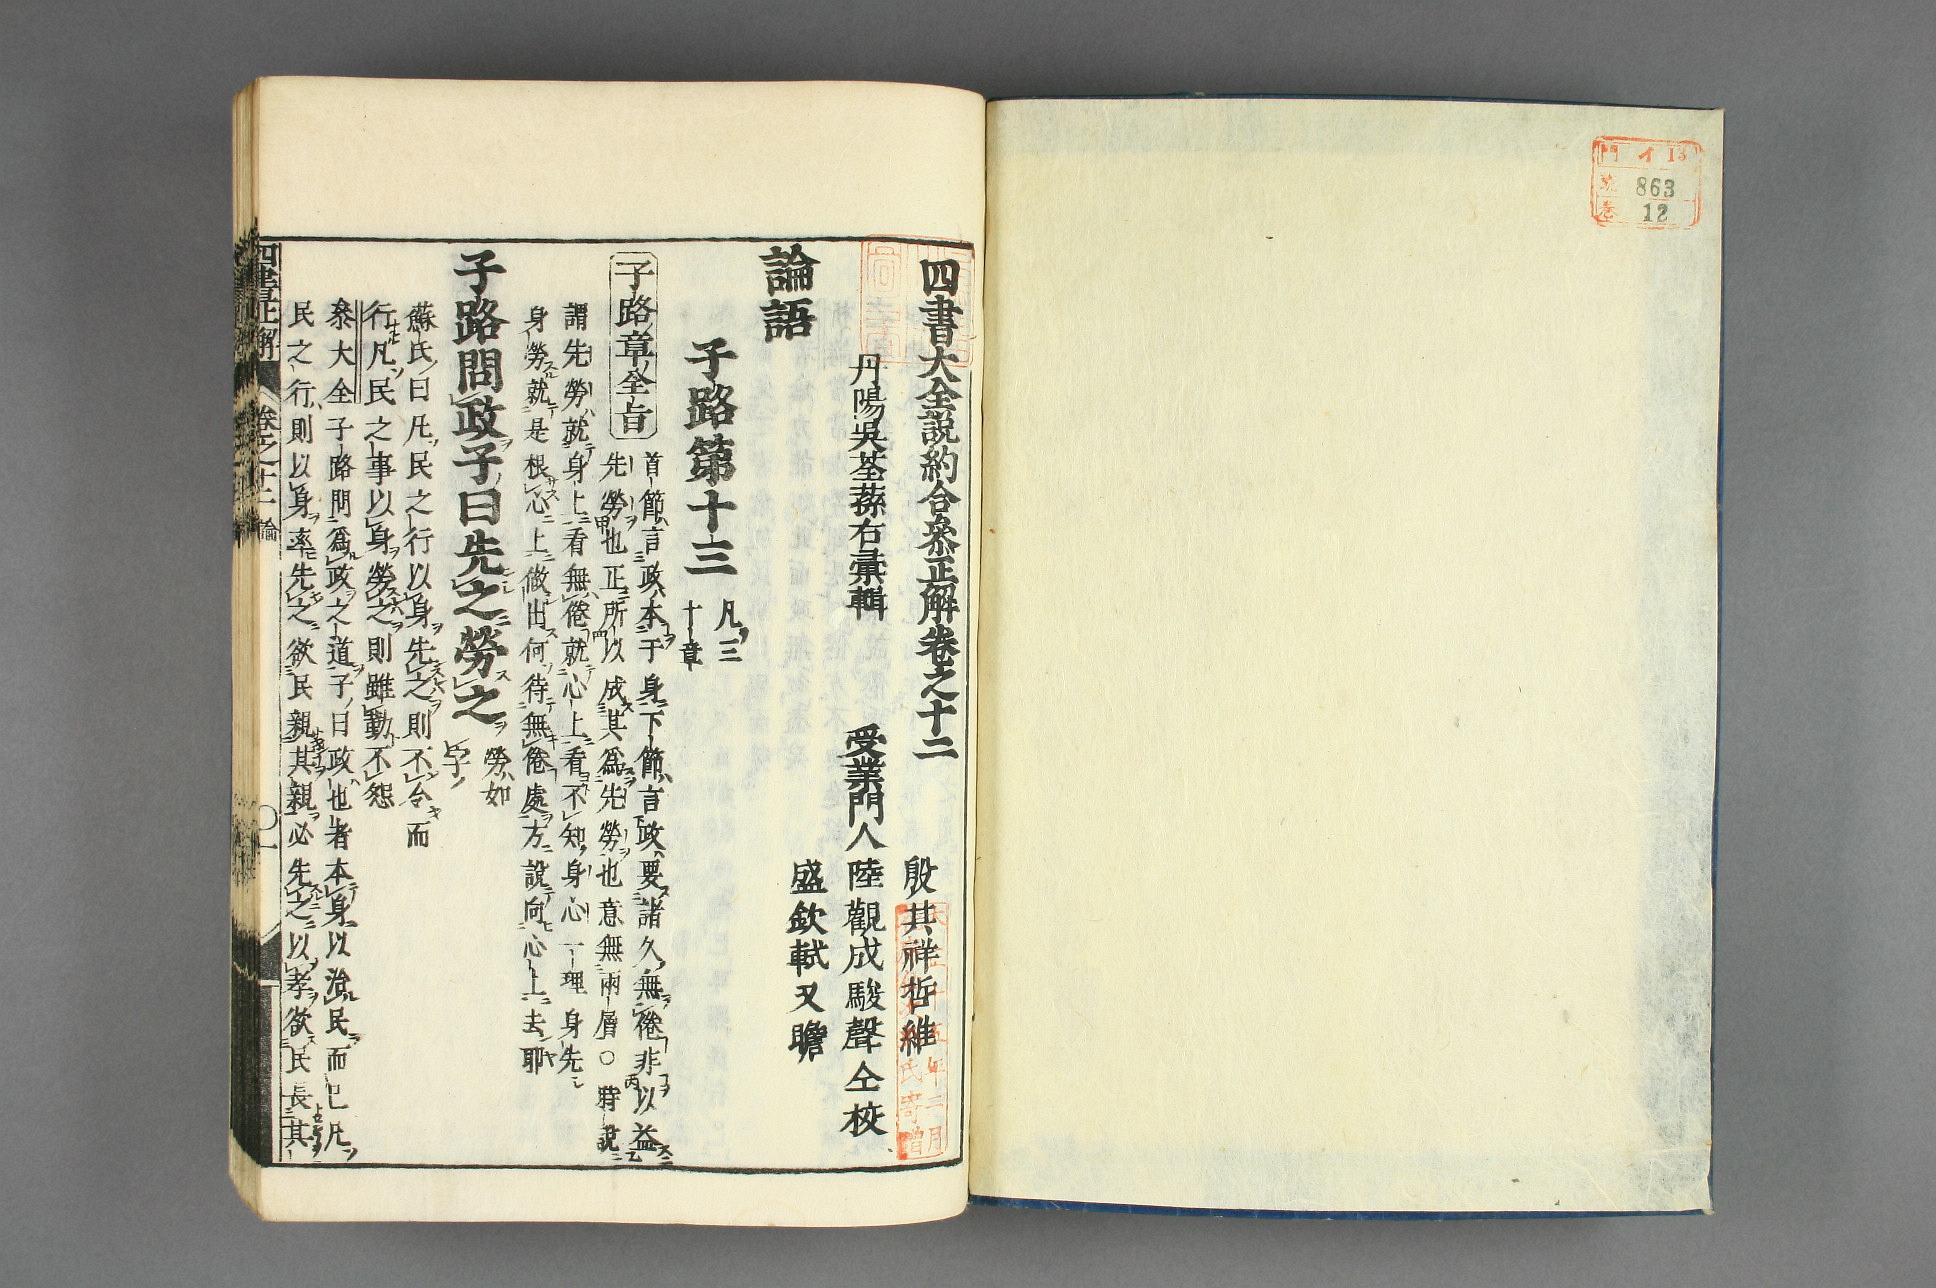 門 イ 13
號 863
巻 12
四書大全説約合叅正解卷之十二
丹陽吳荃蓀右彙輯
受業門人
殷其祥哲維
陸觀成駿聲仝校
盛欽軾又瞻
論語
子路第十三
凡三
十章
子路章全旨
首節言政本于身下節言政要諸久無倦非以益
先勞也正所以成其為先勞也意無兩層○時說
謂先勞就身上看無倦就心上看不知身心一理身先
身勞就是根心上做出何待無倦處方說向心上去耶
子路問政子曰先之勞之
勞如
字
蘇氏曰凡民之行以身先之則不令而
行凡民之事以身勞之則雖勤不怨
叅大全子路問為政之道子曰政也者本身以治民而已凡
民之行則以身率先之欲民親其親必先之以孝欲民長其
四書正解
卷之十二
論
○一